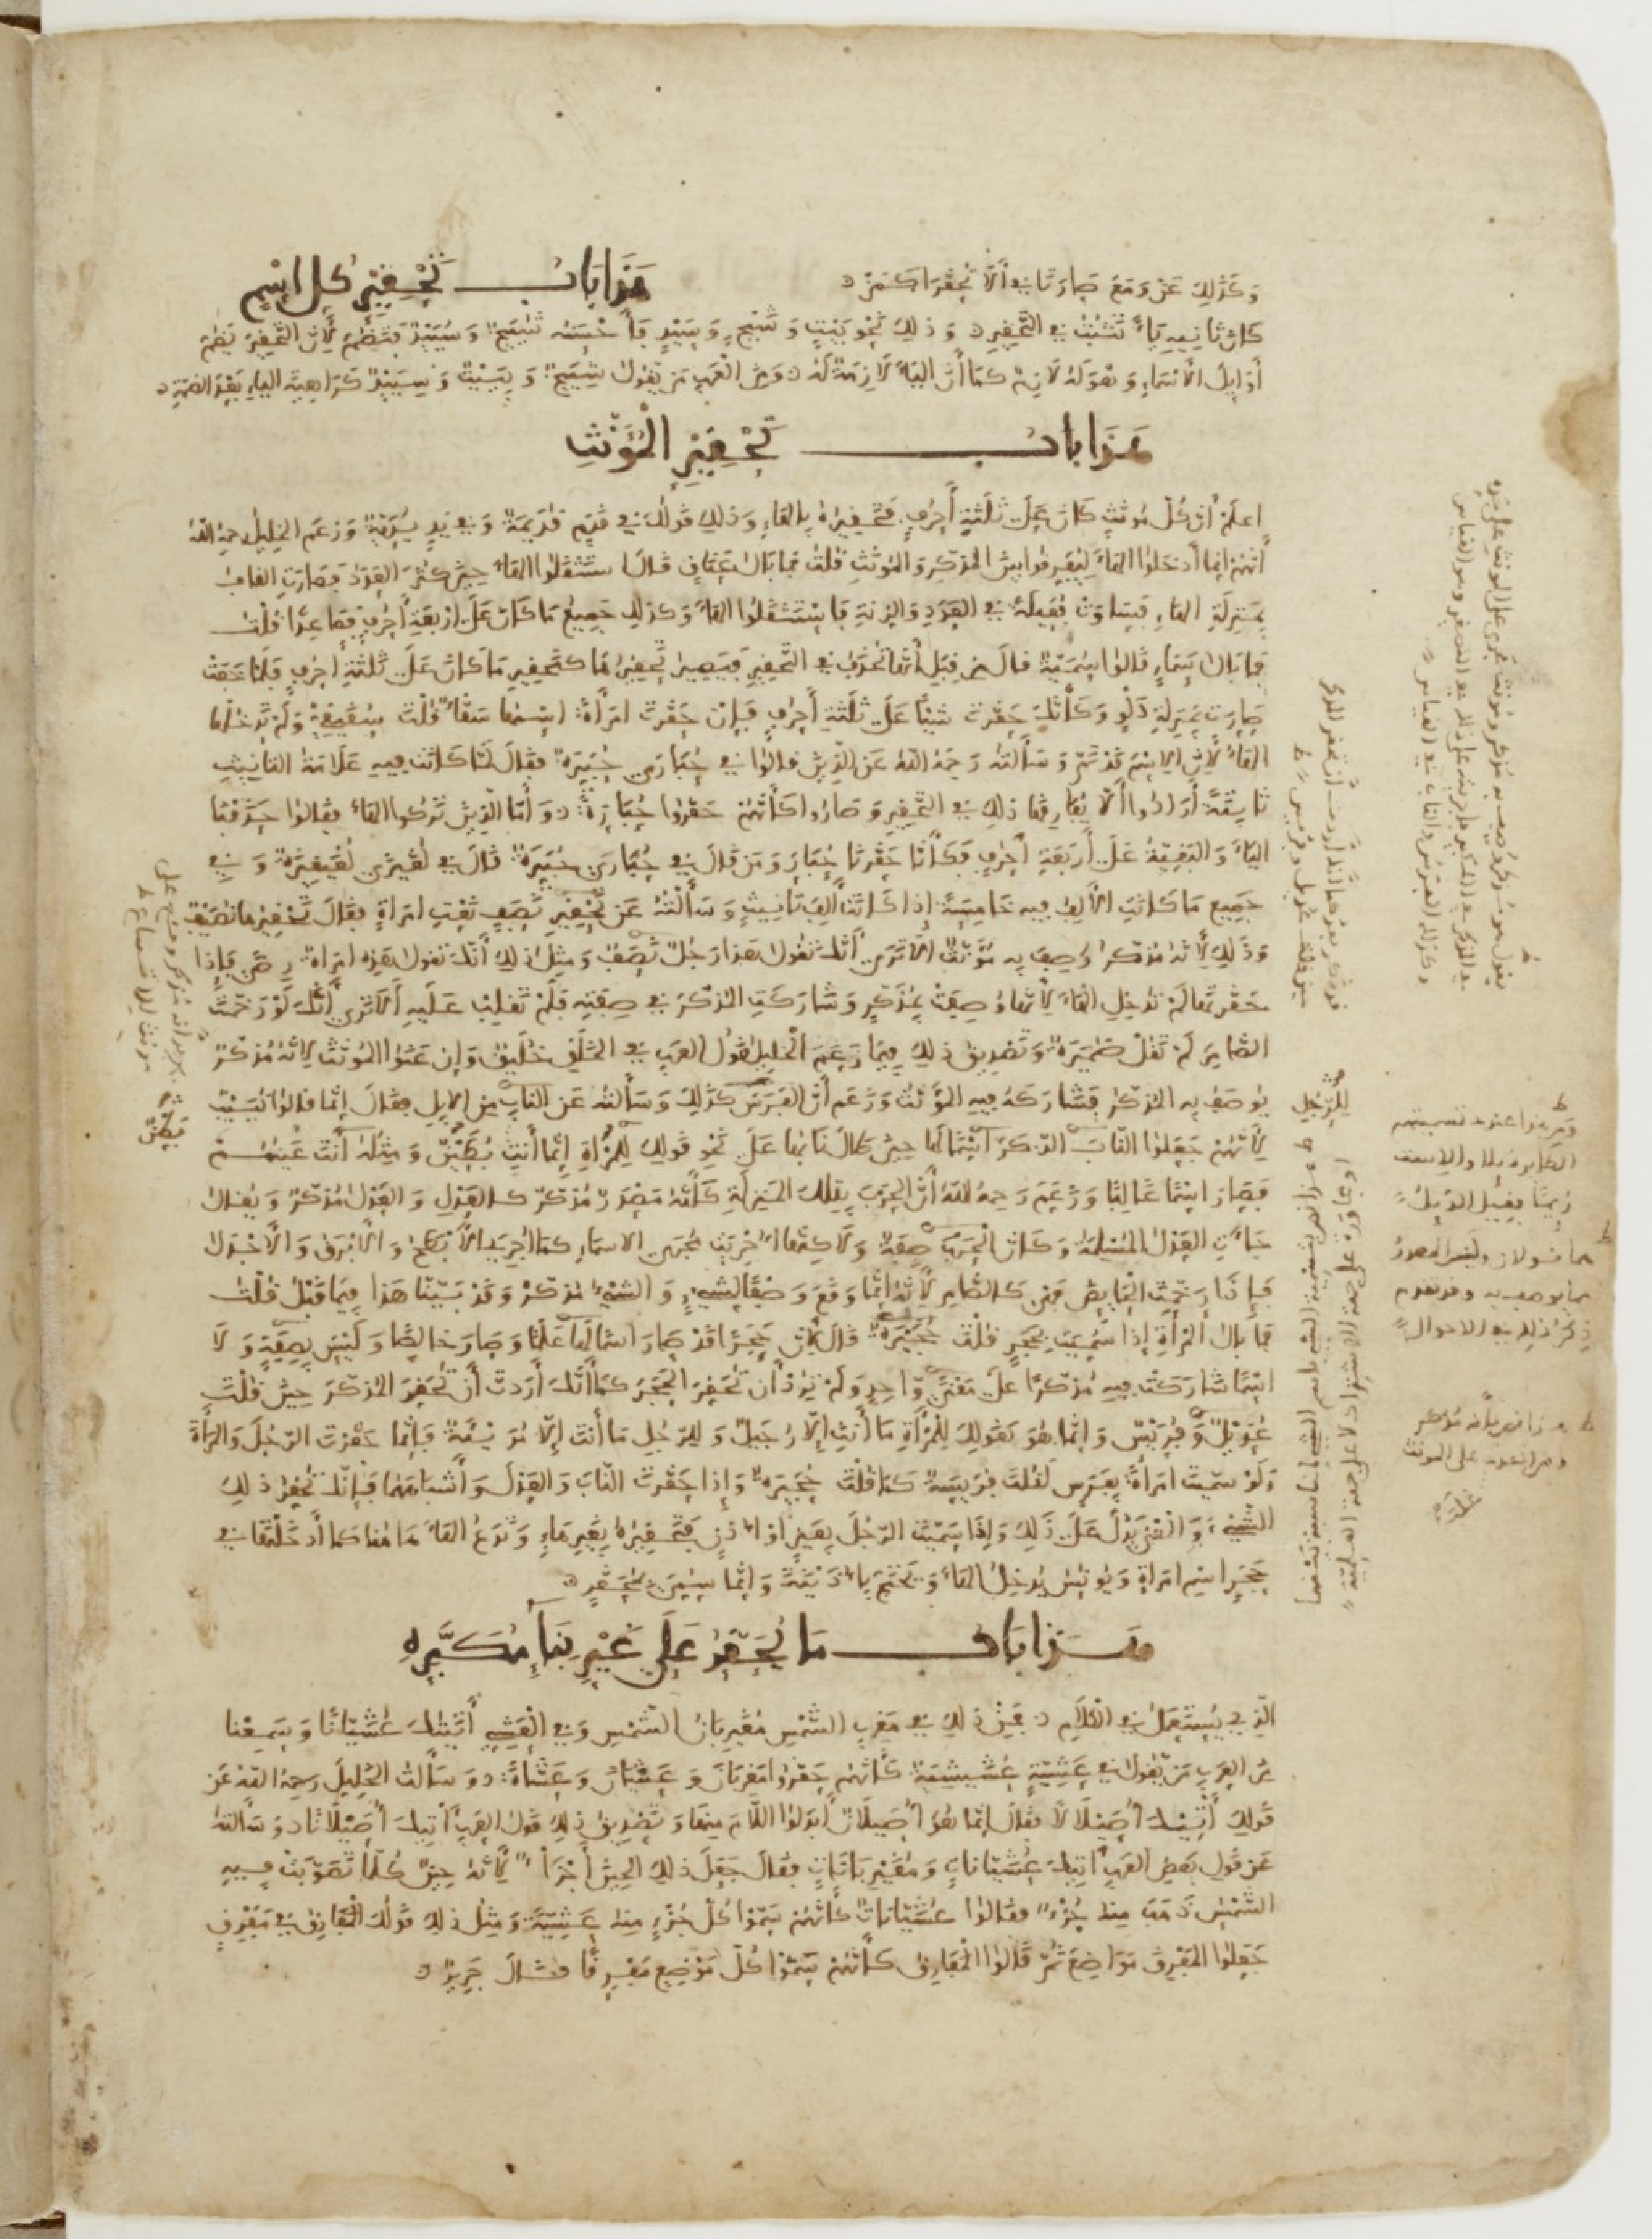 وَكَذَلِكَ عَنْ وَمَعَ صَارَتَا في أَلَّا تُحَقَّرَا كَمَنْ
هَذَا بَابُ تَحْقِيرِ كُلِّ اسْمٍ
كانَ ثانِيهِ يَاءً تَثْبُتُ في التَّحْقِيرِ وَذلِكَ نَحْوُ بَيْتٍ وَشَيْخٍ وَسَيْدٍ فَأَحْسَنُه شُيَيْخٌ وَسُيَيْدٌ فَتَضُمُّ لِأَنَّ التَّحْقِيرَ يَضُمُّ
أَوَائِلَ الأَسْمَاءِ وَهُوَ لَهُ لَازِمٌ كَمَا أَنَّ اليَاءَ لَازِمَةٌ لَهُ وَمِنَ الْعَرَبِ مَنْ يَقُولُ شِيَيْخٌ وَبِيَيْتٌ وَسِيَيْدٌ كَرَاهِيَةَ الياءِ بَعْدَ الضَّمَّةِ
هَذَا بَابُ تَحْقِيرِ الْمُؤَنَّثِ
اِعلَمْ أنَّ كُلَّ مُؤَنَّثٍ كانَ عَلَى ثَلَثَةِ أَحْرُفٍ فَتَحْقِيرُهُ بِالهَاءِ وَذلِكَ قَوْلُكَ في قَدَمٍ قُدَيْمَةٌ وَفي يَدٍ يُدَيَّةٌ وَزَعَمَ الخَلِيلُ رحمه اللهُ
أَنَّهُمْ إِنَّمَا أَدْخَلُوا الهَاءَ لِيُفَرِّقُوا بَيْنَ المُذَكَّرِ وَالمُؤَنَّثِ قُلْتُ فَمَا بَالُ عَنَاقٍ قَالَ اسْتَثْقَلُوا الهَاءَ حِينَ كَثُرَ العَدَدُ فَصَارَتِ القافُ
بِمَنْزِلَةِ الهَاءِ فَصَارَتْ فُعَيْلَةُ في العَدَدِ وَالزِّنَةِ فَاسْتَثْقَلُوا الهَاءَ وَكَذلِكَ جَمِيعُ مَا كَانَ عَلَى أَرْبَعَةِ أَحْرُفٍ فَصَاعِدًا قُلْتُ
فَمَا بَالُ سَمَاءٍ قَالُوا سُمَيَّةٌ قَالَ مِنْ قِبَلِ أَنَّهَا تُحْذَفُ في التَّحْقِيرِ فَيَصِيرُ تَحْقِيرُهَا كتَحْقِيرِ مَا كَانَ عَلَى ثَلَثَةِ أَحْرُفٍ فَلَمَّا خَفَّتْ
صَارَتْ بِمَنْزِلَةِ دَلْوٍ وَكَأَنَّكَ حَقَّرْتَ شَيْئًا عَلَى ثَلَثَةِ أَحْرُفٍ فَإِنْ حَقَّرْتَ امْرَأَةً اسْمُهَا سَقَّاءٌ قُلْتَ سُقَيْقِيٌّ وَلَمْ تُدْخِلْهَا
الهَاءَ لِأَنَّ الاسْمَ قَدْ تَمَّ وَسَأَلْتُه رَحِمَهُ اللهُ عَنِ الَّذِينَ قَالُوا في حُبَارَى حُبَيِّرَةٌ فَقَالَ لَمَّا كَانَتْ فِيهِ عَلَامَةُ التَّانِيثِ
ثَابِتَةً أَرَادُوا أَلَّا يُفَارِقَهَا ذلِكَ في التَّحْقِيرِ وَصَارُوا كَأَنَّهُمْ حَقَّرُوا حُبَارَةَ وَأَمَّا الَّذِينَ تَرَكُوا الهَاءَ فَقَالُوا حَذَفْنَا
اليَاءَ وَالبَقِيَّةُ عَلَى أَرْبَعَةِ أَحْرُفٍ فَكَأَنَّا حَقَّرْنَا حُبَارَ وَمَنْ قَالَ في حُبَارَى حُبَيِّرَةٌ قَالَ في لُغَّيْزَى لُغَيْغِيزَةٌ وَفي
جَمِيعِ مَا كَانَتِ الأَلِفُ فِيهِ خَامِسَةً إِذَا كَانَتْ أَلِفَ تَانِيثٍ وَسَأَلْتُهُ عَنْ تَحْقِيرِ نَصَفٍ نَعْتِ امْرَأَةٍ فَقَالَ تَحْقِيرُهَا نُصَيْفٌ
وَذَلِكَ لِأَنَّهُ مُذَكَّرٌ وُصِفَ بِهِ مُؤَنَّثٌ أَلَا تَرَى أَنَّكَ تَقُولُ هَذَا رَجُلٌ نَصَفٌ وَمِثْلُ ذلِكَ أَنَّكَ تَقُولُ هَذِهِ امْرَأَةٌ رِضًى فَإِذَا
حَقَّرْتَهَا لَمْ تُدْخِلِ الهَاءَ لِأَنَّهَا وُصِفَتْ بِمُذَكَّرٍ وَشَارَكَتِ المُذَكَّرَ في صِفَتِهِ فَلَمْ تَغْلِبْ عَلَيْهِ أَلَا تَرَى أَنَّكَ لَوْ رَخَّمْتَ
الضَّامِرَ لَمْ تَقُلْ ضُمَيْرَةٌ وَتَصْدِيقُ ذلِكَ فِيمَا زَعَمَ الخَلِيلُ قَوْلُ العَرَبِ في الخَلَقِ خُلَيْقٌ وَإِنْ عَنَوُا المُؤَنَّثَ لِأَنَّهُ مُذَكَّرٌ
يُوصَفُ بِهِ المُذَكَّرُ فَشَارَكَهُ فِيهِ المُؤَنَّثُ وَزَعَمَ أَنَّ الفَرَسَ كَذَلِكَ وَسَأَلْتُه عَنِ النَّابِ مِنَ الإِبِلِ فَقَالَ إِنَّمَا قَالُوا نُيَيْبٌ
لِأَنَّهُمْ جَعَلُوا النَّابَ الذَّكَرَ اسْمًا لَهَا حِينَ طَالَ نَابُهَا عَلَى نَحْوِ قَوْلِكَ لِلْمَرْأَةِ إِنَّمَا أَنْتِ بُطَيْنٌ وَمِثْلُهُ أَنْتَ عَيْنُهُمْ
فَصَارَ اسْمًا غَالِبًا وَزَعَمَ رَحِمَهُ اللهُ أَنَّ الحَرْبَ بِتِلْكَ المَنْزِلَةِ كَأَنَّهُ مَصْدَرٌ مُذَكَّرٌ كَالعَدْلِ وَالعَدْلُ مُذَكَّرٌ وَيُقَالُ
جَاءَتِ العَدْلُ المُسْلِمَةُ وَكَأَنَّ الحَرْبَ صِفَةٌ وَلَكِنَّهَا أُجْرِيَتْ مُجْرَى الاسْمَاءِ كَمَا أُجْرِيَ الأَبْطَحُ وَالأَبْرَقُ وَالأَجْدَلُ
فَإِذَا رَخَّمْتَ الحَايِضَ فَهْيَ كَالضَّامِرِ لِأَنَّهُ إِنَّمَا وَقَعَ وَصْفًا لِشَيْءٍ وَالشَّيْءُ مُذَكَّرٌ وَقَدْ بَيَّنَّا هَذَا فِيمَا قَبْلُ قُلْتُ
فَمَا بَالُ المَرْأَةِ إِذَا سُمِّيَتْ بِحَجَرٍ قُلْتَ حُجَيْرَةٌ قَالَ لِأَنَّ حَجَرًا قَدْ صَارَ اسْمًا لَهَا عَلَمًا وَصَارَ خَالِصًا وَلَيْسَ بِصِفَةٍ وَلَا
اسْمًا شَارَكَتْ فِيهِ مُذَكَّرًا عَلَى مَعْنًى وَاحِدٍ وَلَمْ تُرِدْ أَنْ تُحَقِّرَ الحَجَرَ كَمَا أَنَّكَ أَرَدْتَ أَنْ تُحَقِّرَ المُذَكَّرَ حِينَ قُلْتَ
عُدَيْلٌ وَقُرَيْشٌ وَإِنَّمَا هُوَ كَقَوْلِكَ لِلْمَرْأَةِ مَا أَنْتِ إِلَّا رُجَيْلٌ وَلِلرَّجُلِ مَا أَنْتَ إِلَّا مُرَيْئَةٌ فَإِنَّمَا حَقَّرْتَ الرَّجُلَ وَالمَرْأَةَ
وَلَوْ سَمَّيْتَ امْرَأَةً بِفَرَسٍ لَقُلْتَ فُرَيْسَةٌ كَمَا قُلْتَ حُجَيْرَةٌ وَإِذَا حَقَّرْتَ النَّابَ وَالعَدْلَ وَأَشْبَاهَهُمَا فَإِنَّكَ تُحَقِّرُ ذلِكَ
الشَّيْءَ وَالمَعْنَى يَدُلُّ عَلَى ذَلِكَ وَإِذَا سَمَّيْتَ الرَّجُلَ بِعَيْنٍ أَوْ أُذُنٍ فَتَحْقِيرُهُ بِغَيْرِ هَاءٍ وَتَدَعُ الهَاءَ هَاهُنَا كَمَا أَدْخَلْتَهَا في
حَجَرٍ اسْمِ امْرَأَةٍ وَيُونُسُ يُدْخِلُ الهَاءَ وَيَحْتَجُّ بِأُذَيْنَةَ وَإِنَّمَا سُمِّيَ بِمُحَقَّرٍ
هَذَا بَابُ مَا يُحَقَّرُ عَلَى غَيْرِ بِنَاءِ مُكَبَّرِهِ
الَّذِي يُسْتَعْمَلُ في الكَلَامِ فَمِنْ ذلِكَ في مَغْرِبِ الشَّمْسِ مُغَيْرِبَانُ الشَّمْسِ وَفي العَشِيِّ أَتَيْتُكَ عُشَيَّانًا وَسَمِعْنَا
مِنَ العَرَبِ مَنْ يَقُولُ في عَشِيَّةٍ عُشَيْشِيَةٌ كَأَنَّهُمْ حَقَّرُوا مَغْرِبَانَ وَعَشْيَانَ وَعَشَاةً وَسَأَلْتُ الخَلِيلَ رحمه اللهُ عَنْ
قَوْلِكَ أَتَيْتُكَ أُصَيْلَالًا فَقَالَ إِنَّمَا هُوَ أُصَيْلَانٌ أَبْدَلُوا اللَّامَ مِنْهَا وَتَصْدِيقُ ذلِكَ قَوْلُ العَرَبِ أَتَيْتُكَ أُصَيْلَانًا وَسَأَلْتُهُ
عَنْ قَوْلِ بَعْضِ العَرَبِ أَتَيْتُكَ عُشَيَّانَاتٍ وَمُغَيْرِبَانَاتٍ فَقَالَ جَعَلَ ذلِكَ الحِينَ أَجْزَاءً لِأَنَّهُ حِينٌ كُلَّمَا تَصَوَّبَتْ فِيهِ
الشَّمْسُ ذَهَبَ مِنْهُ جُزْءٌ فَقَالُوا عُشَيَّانَاتٌ كَأَنَّهُمْ سَمَّوْا كُلَّ جُزْءٍ مِنْهُ عَشِيَّةً وَمِثْلُ ذلِكَ قَوْلُكَ المَفَارِقُ في مَفْرِقٍ
جَعَلُوا المَفْرِقَ مَوَاضِعَ ثُمَّ قَالُوا المَفَارِقُ كَأَنَّهُمْ سَمَّوْا كُلَّ مَوْضِعٍ مَفْرِقًا قَالَ جَرِيرٌ